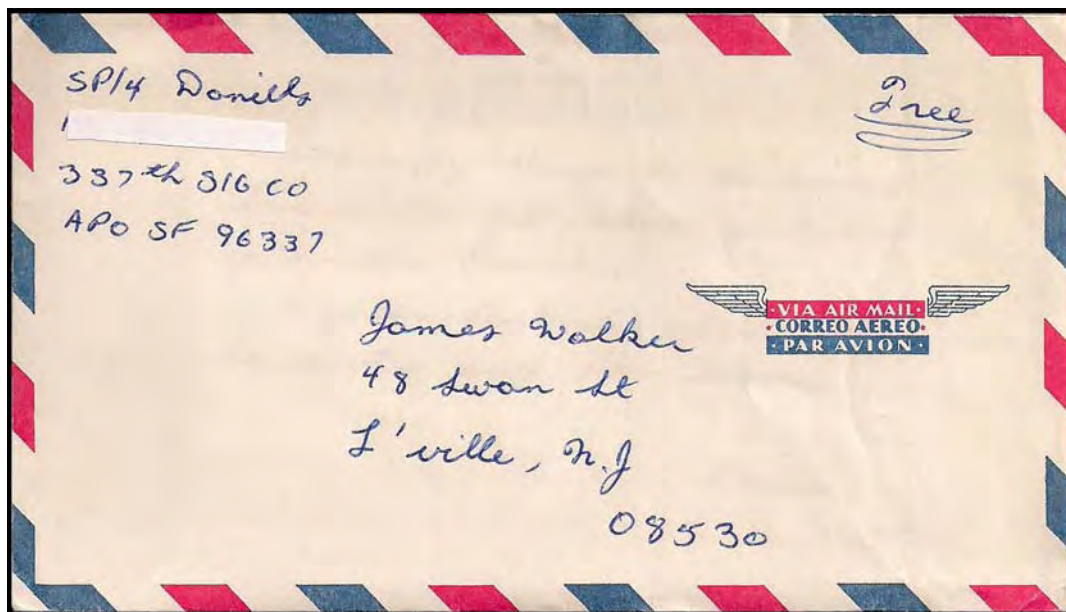 SP/4 Daniels
337th SIG CO
APO SF 96337
Free
·VIA AIR MAIL·
·CORREO AEREO·
·PAR AVION·
James Walker
48 Swan St
L'ville, N.J
08530